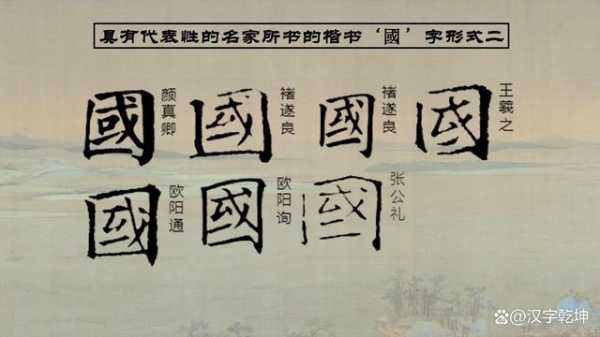 具有代表性的名家所书的楷书‘國’字形式二
國 颜真卿
國 褚遂良
國 褚遂良
國 王羲之
國 欧阳通
國 欧阳询
國 张公礼
@汉字乾坤